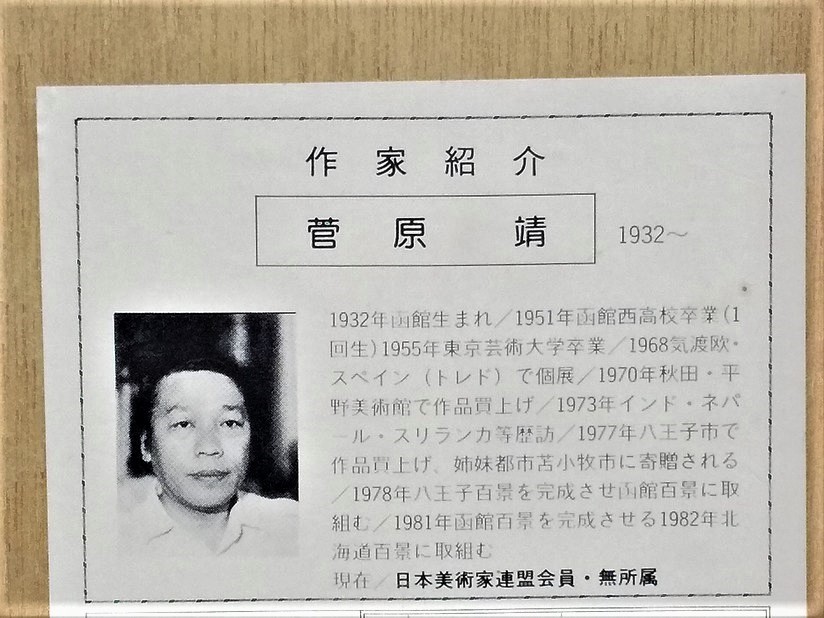 作家紹介
菅原 靖 1932～
1932年函館生まれ／1951年函館西高校卒業(1
回生)1955年東京芸術大学卒業／1968気渡欧・
スペイン（トレド）で個展／1970年秋田・平
野美術館で作品買上げ／1973年インド・ネパ
ール・スリランカ等歴訪／1977年八王子市で
作品買上げ、姉妹都市苫小牧市に寄贈される
／1978年八王子百景を完成させ函館百景に取
組む／1981年函館百景を完成させる1982年北
海道百景に取組む
現在／日本美術家連盟会員・無所属